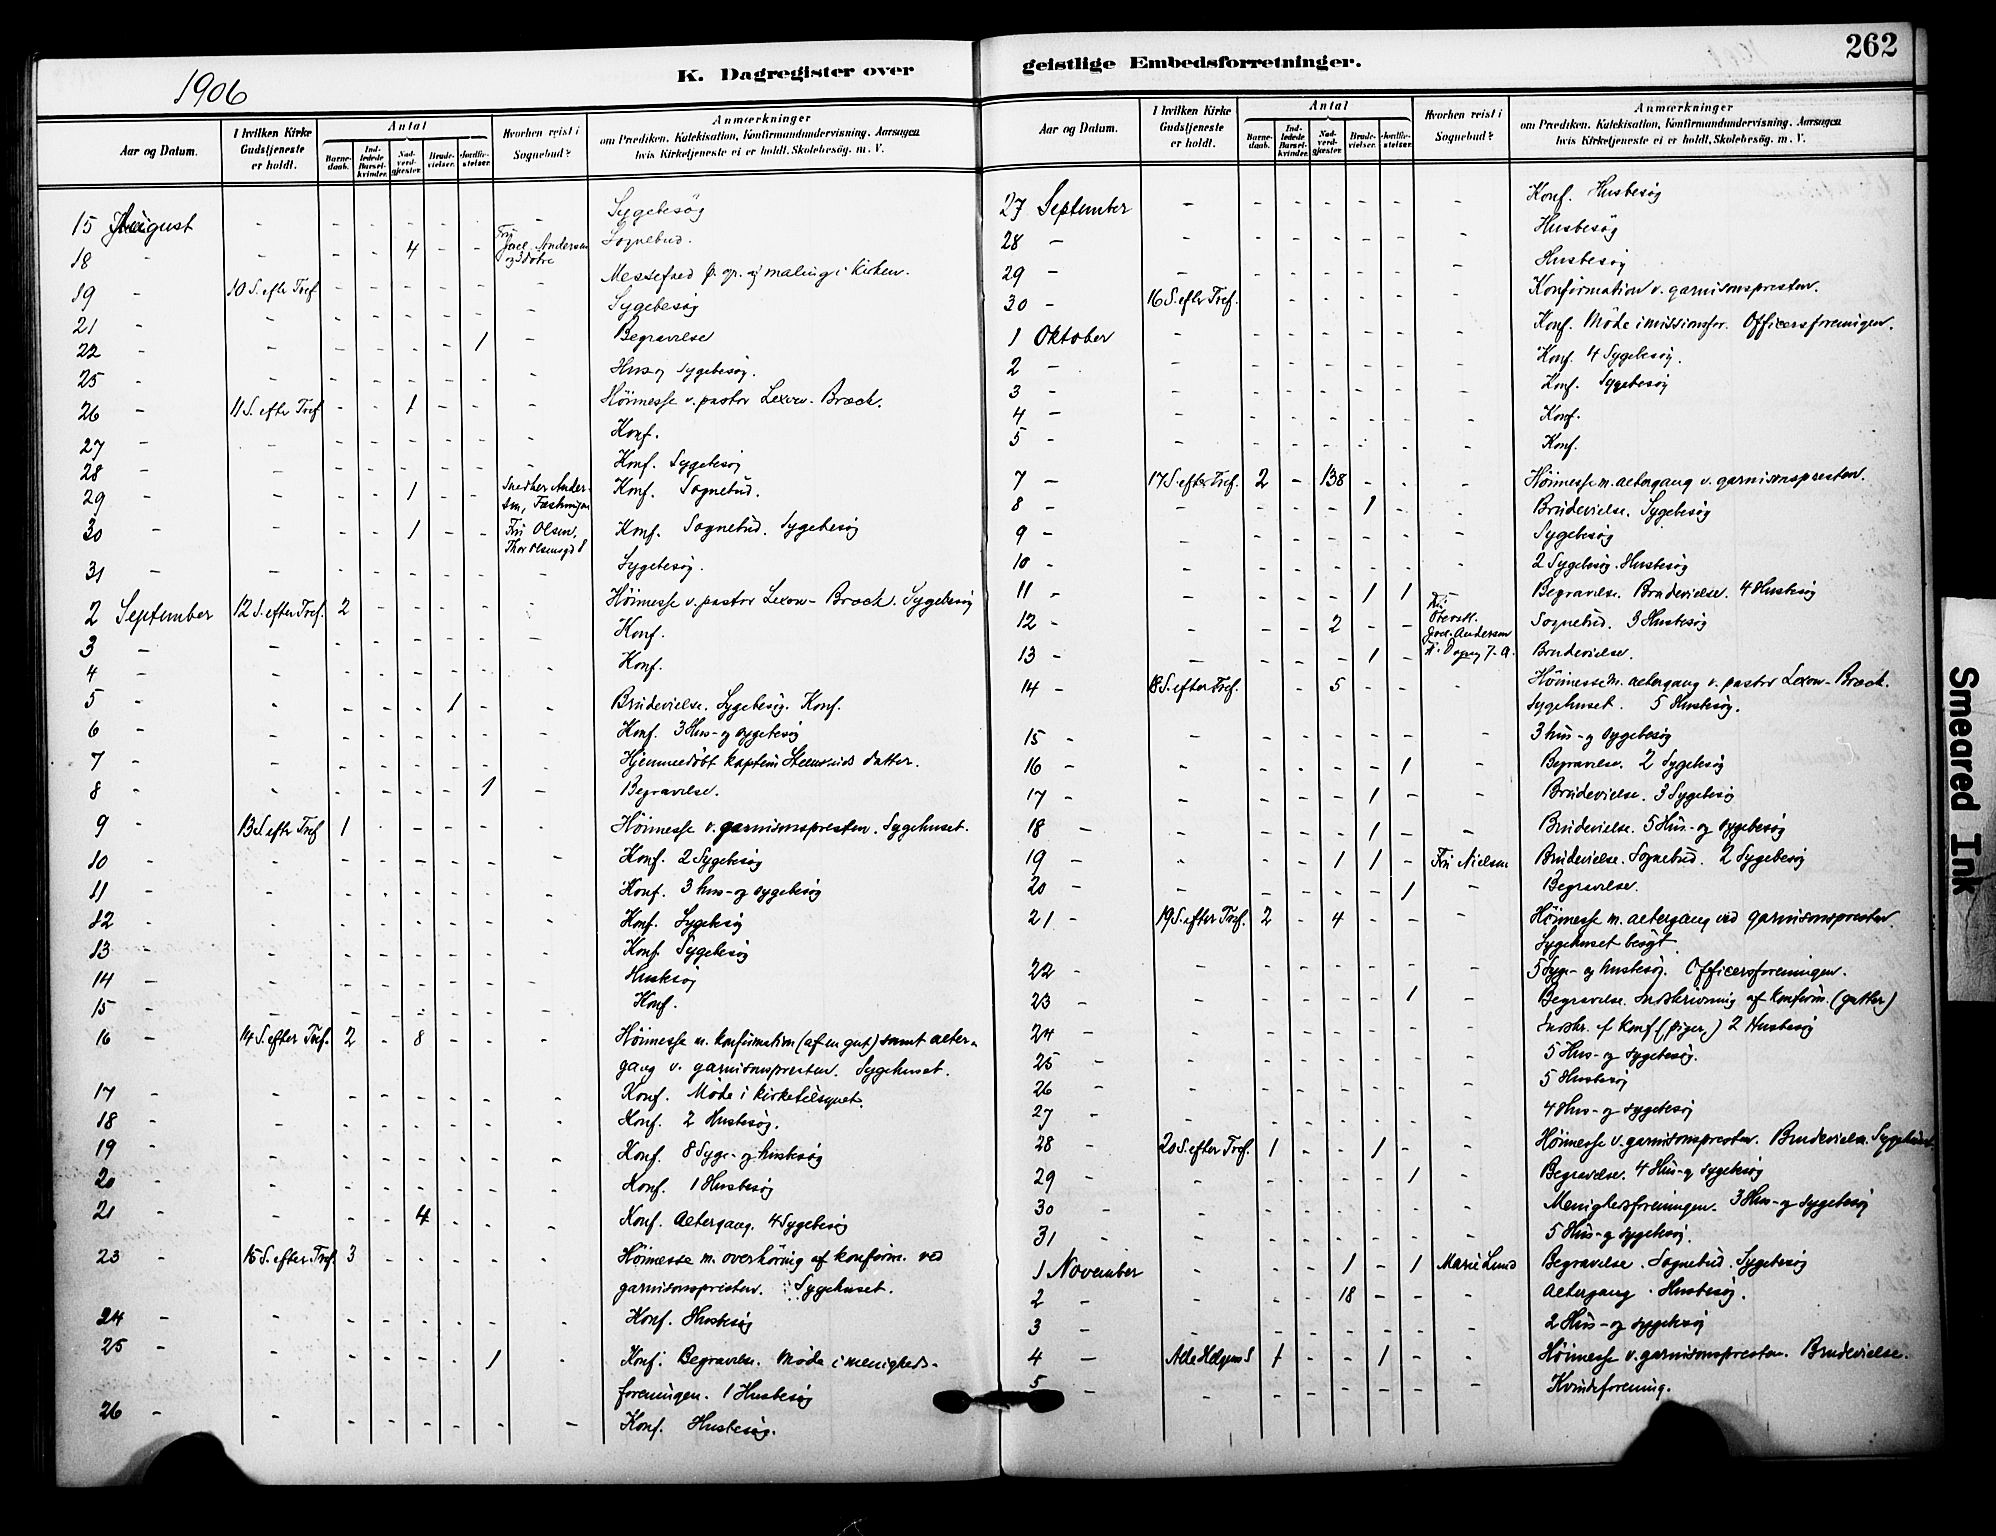 1906
K. Dagregister over
Aar og Datum.
I hvilken Kirke Gudstjeneste er holdt.
Antal
Barne-daab.
Ind-ledede Barsel-kvinder.
Nad-verd-gjæster.
Brude-vielser.
Jordfæ-stelser.
Hvorhen reist i Sognebud?
Anmærkninger
om Prædiken, Katekisation, Konfirmandundervisning, Aarsagen
hvis Kirketjeneste ei er holdt, Skolebesög, m. V.
15 August - - - - - - - Sygebesög
18 - - - - 4 - - Andersen Sognebud.
19 - 10 S. eftr Tref. - - - - - - Messefald maling i kirken.
21 - - - - - - - - Sygebesög
22 - - - - - - 1 - Begravelse
25 - - - - - - - - Hus og sygebesög.
26 - 11 S. eftr Tref - - 1 - - - Höimesse v. pastor Lexow-Brock.
27 - - - - - - - - Konf.
28 - - - - - - - - Konf. Sygebesög
29 - - - - 1 - - Snedker Ander- Konf. Sognebud.
30 - - - - 1 - - Fru Olsen, Konf. Sognebud. Sygebesög
Thor Olsensgd 8
31 - - - - - - - - Sygebesög.
2 September 12 S. efter Tref. 2 - - - - - Höimesse v. pastor Lexow-Brock. Sygebesög
3 - - - - - - - - Konf.
4 - - - - - - - - Konf.
5 - - - - - 1 - - Brudevielse. Sygebesög. Konf.
6 - - - - - - - - Konf. 3 Hus- og sygebesög
7 - - - - - - - - Hjemmedöbt kaptein datter.
8 - - - - - - 1 - Begravelse.
9 - 13 S. eftr Tref 1 - - - - - Höimesse v. garnisonspresten. Sygehuset.
10 - - - - - - - - Konf. 2 Sygebesög
11 - - - - - - - - Konf. 3 hus- og sygebesög
12 - - - - - - - - Konf. Sygebesög
13 - - - - - - - - Konf. Sygebesög
14 - - - - - - - - Husbesög
15 - - - - - - - - Konf.
16 - 14 S. efter Tref. 2 - 8 - - - Höimesse m. konfirmation (af en gut) samt alter-
gang v. garnisonspresten. Sygehuset.
17 - - - - - - - - Konf. Möde i kirketilsynet.
18 - - - - - - - - Konf. 2 Husbesög.
19 - - - - - - - - Konf. 8 Syge- og husbesög
20 - - - - - - - - Konf. 1 Husbesög
21 - - - - 4 - - - Konf. Altergang. 4 Sygebesög
23 - 15 S. efter Tref. 3 - - - - - Höimesse m. overhöring af konfirm. ved
garnisonspresten. Sygehuset.
24 - - - - - - - - Konf. Husbesög
25 - - - - - - 1 - Konf. Begravelse. Möde i menigheds-
foreningen. 1 Husbesög
26 - - - - - - - - Konf. Husbesög.
geistlige Embedsforretninger.
262
Aar og Datum.
I hvilken Kirke Gudstjeneste er holdt.
Antal
Barne-daab.
Ind-ledede Barsel-kvinder.
Nad-verd-gjæster.
Brude-vielser.
Jordfæ-stelser.
Hvorhen reist i Sognebud?
Anmærkninger
om Prædiken, Katekisation, Konfirmandundervisning, Aarsagen
hvis Kirketjeneste ei er holdt, Skolebesög, m. V.
27 September - - - - - - - Konf. Husbesög
28 - - - - - - - - Husbesög
29 - - - - - - - - Husbesög
30 - 16 S. efter Tref. - - - - - - Konfirmation v. garnisonspresten.
1 Oktober - - - - - - - Konf. Möde i missionsfor. Officersforeningen.
2 - - - - - - - - Konf. 4 Sygebesög.
3 - - - - - - - - Konf. Sygebesög
4 - - - - - - - - Konf.
5 - - - - - - - - Konf.
7 - 17 S. efter Tref. 2 - 138 - - - Höimesse m. altergang v. garnisonspresten.
8 - - - - - 1 - - Brudevielse. Sygebesög
9 - - - - - - - - Sygebesög
10 - - - - - - - - 2 Sygebesög. Husbesög
11 - - - - - 1 1 - Begravelse. Brudevielse. 4 Husbesög
12 - - - - 2 - - Andersen Sognebud. 3 Husbesög
13 - - - - - 1 - Brudevielse.
14 - 18 S. efter Tref. - - 5 - - - Höimesse m. altergang v. pastor Lexow-Brock.
Sygehuset. 5 Husbesög.
15 - - - - - - - - 3 hus- og sygebesög
16 - - - - - - 1 - Begravelse. 2 Sygebesög
17 - - - - - 1 - - Brudevielse. 3 Sygebesög
18 - - - - - 1 - - Brudevielse. 5 Hus- og sygebesög
19 - - - - 1 1 - Fru Nielsen Brudevielse. Sognebud. 2 Sygebesög
20 - - - - - - 1 - Begravelse.
21 - 19 S. efter Tref. 2 - 4 - - - Höimesse m. altergang ved garnisonspresten.
Sygehuset besögt
22 - - - - - - - - 5 Syge- og husbesög. Officersforeningen.
23 - - - - - - 1 - Begravelse. Indskrivning af konfirm. (gutter)
24 - - - - - - - - Indskr. af konf (piger,) 2 Husbesög
25 - - - - - - - - 5 Hus- og sygebesög.
26 - - - - - - - - 5 Husbesög
27 - - - - - - - - 4 Hus- og sygebesög
28 - 20 S. efter Tref. 1 - - 1 - - Höimesse v. garnisonspresten. Brudevielse. Sygehuset.
29 - - - - - - 1 - Begravelse. 4 Hus- og sygebesög
30 - - - - - - - - Menighedsforeningen. 3 Hus- og sygebesög
31 - - - - - - - - 5 Hus- og sygebesög.
1 November - - - 1 - 1 Marie Lund Begravelse. Sognebud. Sygebesög
2 - - - - 18 - - - Altergang. Husbesög.
3 - - - - - - - - 2 Hus- og sygebesög
4 - Alle Helgens S 1 - - 1 - - Höimesse v. garnisonspresten. Brudevielse.
5 - - - - - - - - Kvindeforening.
Smeared Ink